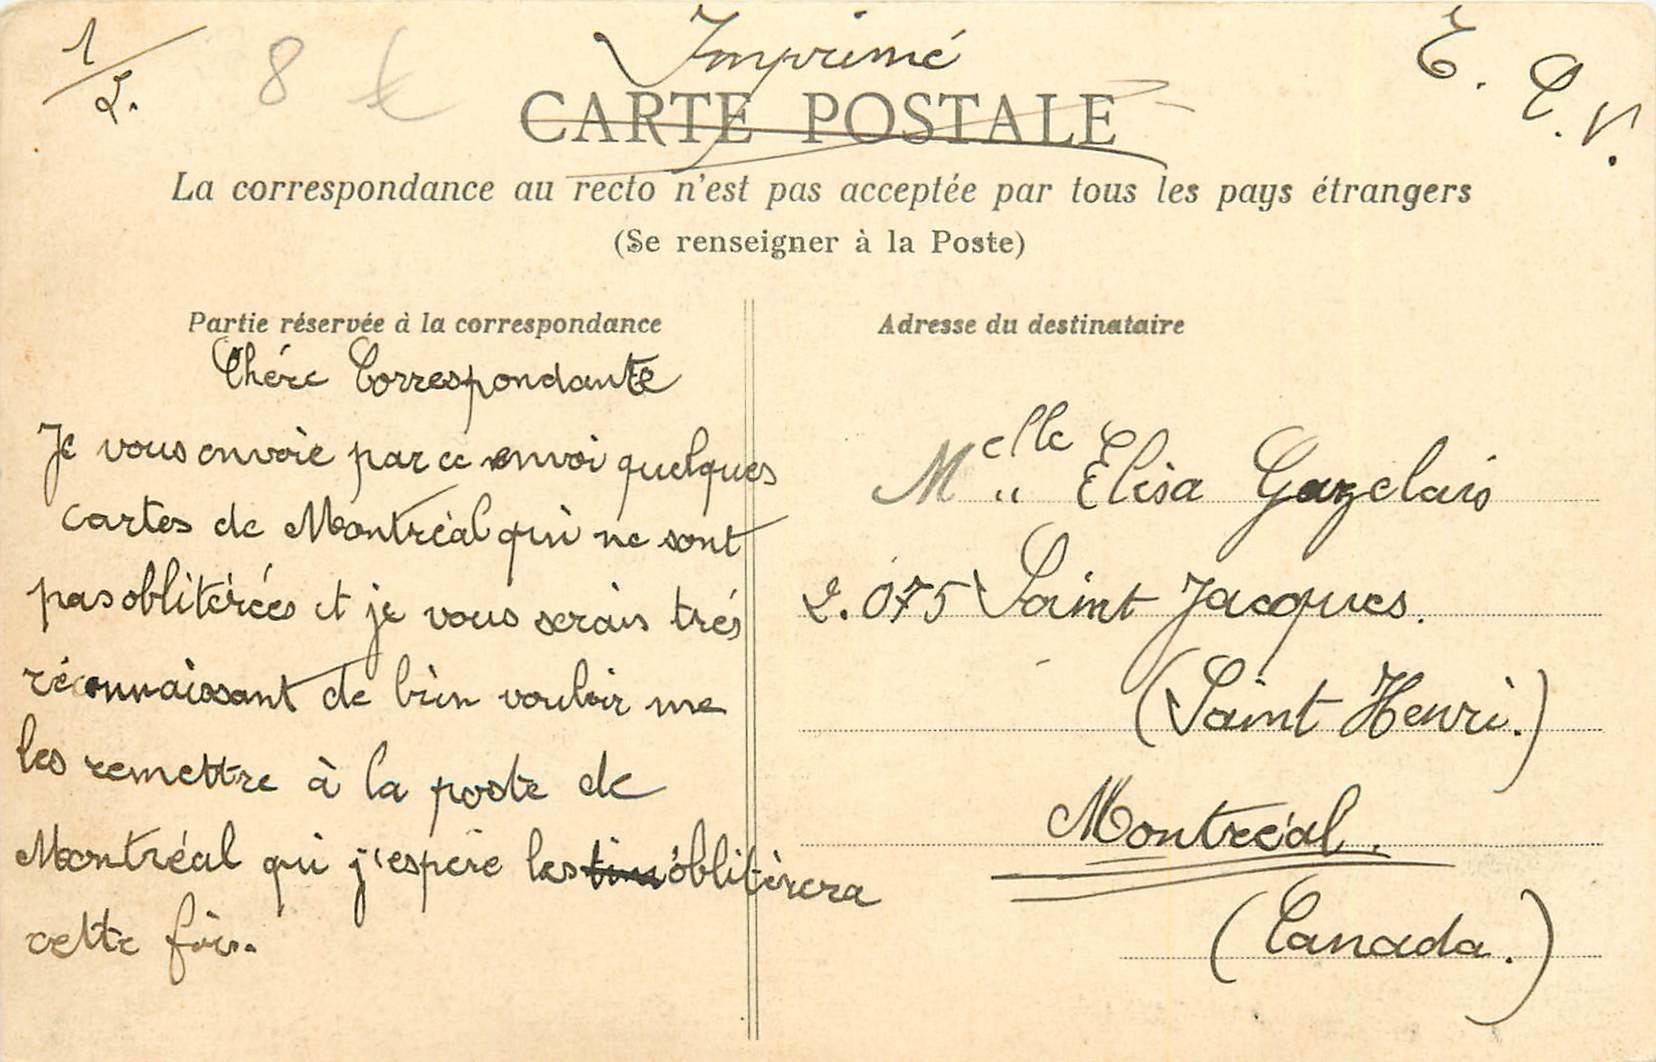 1/2.
8
Imprimé
E. P. V.
CARTE POSTALE
La correspondance au recto n'est pas acceptée par tous les pays étrangers
(Se renseigner à la Poste)
Partie réservée à la correspondance
Chére Correspondante
Je vous envoie par ce envoi quelques
cartes de Montréal qui ne sont
pas oblitérées et je vous serais trés
réconnaissant de bien vouloir me
les remettre à la poste de
Montréal qui j'espére les oblitèrera
cette fois.
Adresse du destinataire
Melle Elisa Gazelais
2.075 Saint Jacques.
(Saint Henri.)
Montréal.
(Canada.)